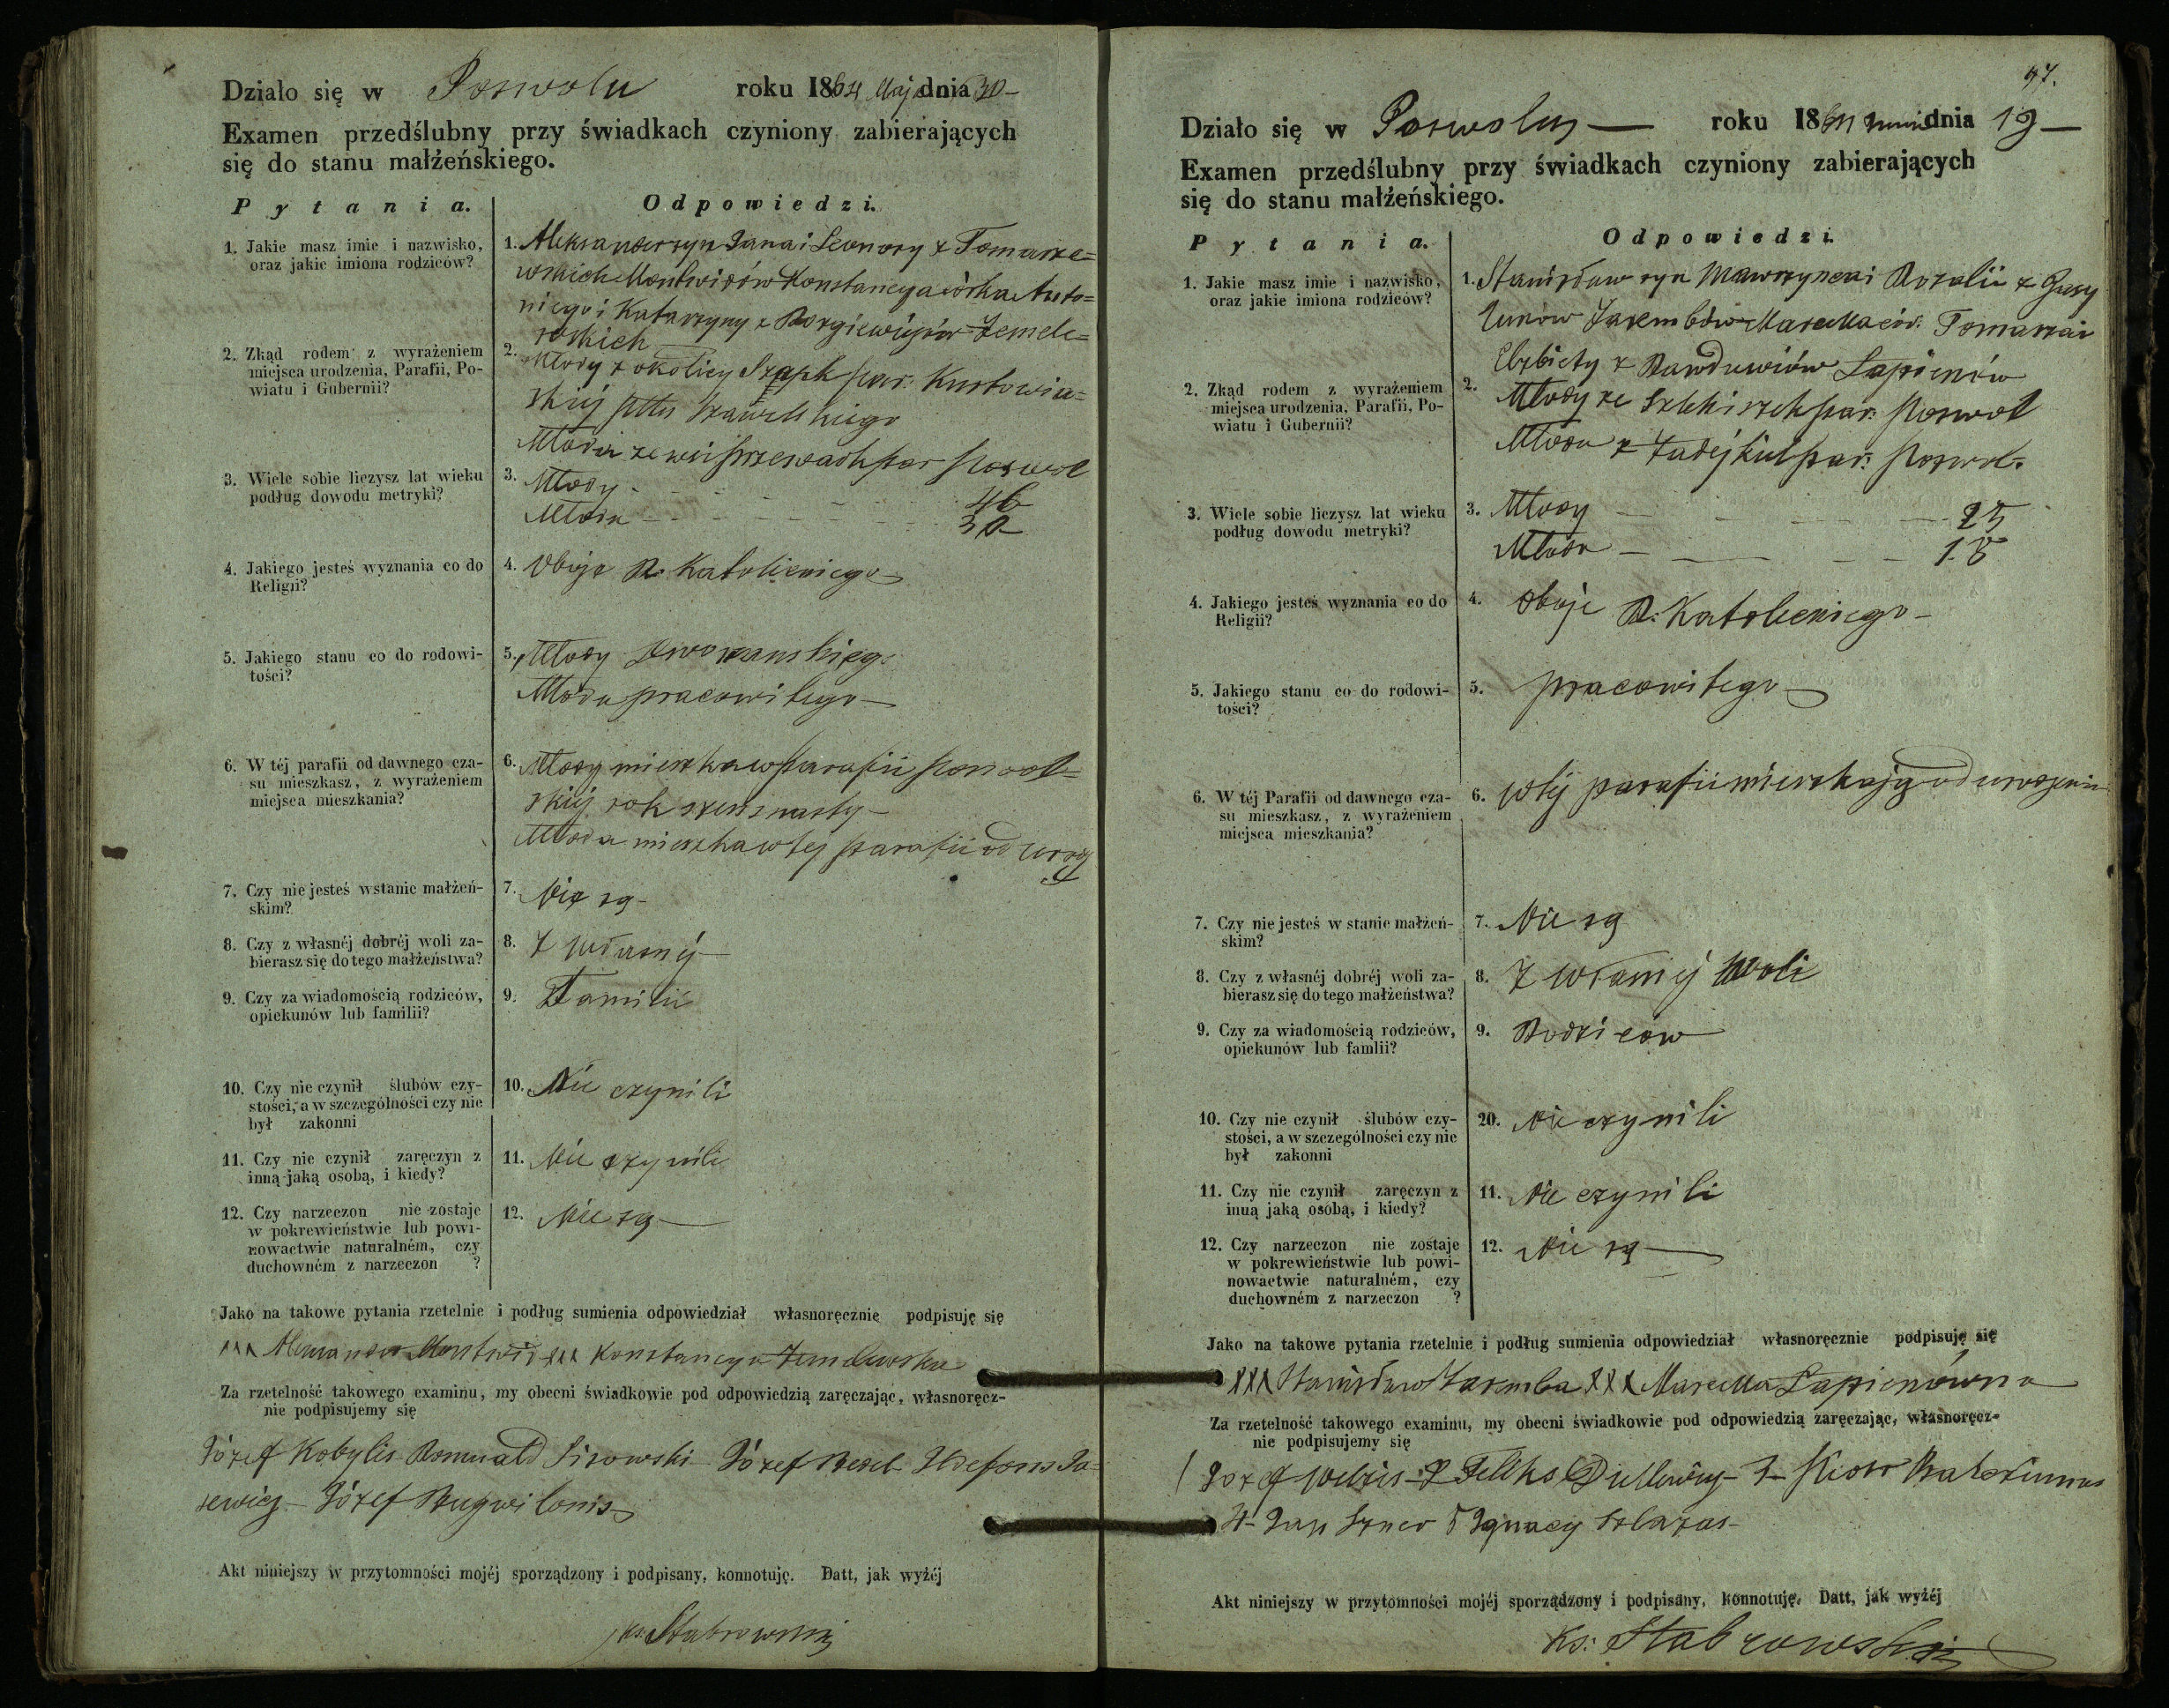 Działo się w Poswolu roku 1864 Maja dnia 30 –
Examen przedślubny przy świadkach czyniony zabierających
się do stanu małżeńskiego.
Pytania.
Odpowiedzi.
1. Jakie masz imie i nazwisko,
oraz jakie imiona rodziców?
1. Aleksander syn Jana i Leonory z Tomasze=
wskich Montwidów Konstancya córka Anto=
niego i Katarzyny z
2. Zkąd rodem z wyrażeniem
miejsca urodzenia, Parafii, Po-
wiatu i Gubernii?
2. Młody z okolicy par:
skiéj pttu Szawelskiego
Młoda ze wsi par Poswol
3. Wiele sobie liczysz lat wieku
podług dowodu metryki?
3. Młody - - - 46
Młoda - - - 30
4. Jakiego jesteś wyznania co do
Religii?
4. Oboje R. Katolickiego –
5. Jakiego stanu co do rodowi-
tości?
5. Młody Dworzanskiego
Młoda pracowitego –
6. W téj parafii od dawnego cza-
su mieszkasz, z wyrażeniem
miejsca mieszkania?
6. Młody mieszka w parafii Poswol=
skiéj rok szesnasty –
Młoda mieszka w tej parafii od urodz
7. Czy nie jesteś w stanie małżeń-
skim?
7. Nie są –
8. Czy z własnéj dobréj woli za-
bierasz się do tego małżeństwa?
8. Z własnéj –
9. Czy za wiadomością rodziców,
opiekunów lub familii?
9. Familii
10. Czy nie czynił ślubów czy-
stości, a w szczególności czy nie
był zakonni
10. Nie czynili
11. Czy nie czynił zaręczyn z
inną jaką osobą, i kiedy?
11. Nie czynili
12. Czy narzeczon nie zostaje
w pokrewieństwie lub powi-
nowactwie naturalném, czy
duchowném z narzeczon ?
12. Nie są –
Jako na takowe pytania rzetelnie i podług sumienia odpowiedział własnoręcznie podpisuję się
xxx Alexander Montwid xxx Konstancya
Za rzetelność takowego examinu, my obecni świadkowie pod odpowiedzią zaręczając, własnoręcz-
nie podpisujemy się
Józef Kobylis Romuald Józef Ildefons
Józef
Akt niniejszy w przytomności mojéj sporządzony i podpisany, konnotuję. Datt, jak wyżéj
Ks. Stabrowski
47.
Działo się w Poswolu – roku 1864 Junii dnia 19 –
Examen przedślubny przy świadkach czyniony zabierających
się do stanu małżeńskiego.
Pytania.
Odpowiedzi.
1. Jakie masz imie i nazwisko,
oraz jakie imiona rodziców?
1. Stanisław syn Wawrzyńca i Rozalii z
Jarembów Marcella cór: Tomasza i
Elzbiety z Łapienów
2. Zkąd rodem z wyrażeniem
miejsca urodzenia, Parafii, Po-
wiatu i Gubernii?
2. Młody ze par: Poswol
Młoda z par: Poswol.
3. Wiele sobie liczysz lat wieku
podług dowodu metryki?
3. Młody – – – 25
Młoda – – – 18
4. Jakiego jesteś wyznania co do
Religii?
4. Oboje R. Katolickiego –
5. Jakiego stanu co do rodowi-
tości?
5. pracowitego –
6. W téj Parafii od dawnego cza-
su mieszkasz, z wyrażeniem
miejsca mieszkania?
6. W téj parafii mieszkają od urodzenia
7. Czy nie jesteś w stanie małżeń-
skim?
7. Nie są
8. Czy z własnéj dobréj woli za-
bierasz się do tego małżeństwa?
8. Z własnéj woli
9. Czy za wiadomością rodziców,
opiekunów lub famlii?
9. Rodziców
10. Czy nie czynił ślubów czy-
stości, a w szczególności czy nie
był zakonni
20. Nie czynili
11. Czy nie czynił zaręczyn z
inuą jaką osobą, i kiedy?
11. Nie czynili
12. Czy narzeczon nie zostaje
w pokrewieństwie lub powi-
nowactwie naturalném, czy
duchowném z narzeczon ?
12. Nie są –
Jako na takowe pytania rzetelnie i podług sumienia odpowiedział własnoręcznie podpisuję się
xxx Stanisław Jaremba xxx Marcella Łapienówna
Za rzetelność takowego examinu, my obecni świadkowie pod odpowiedzią zaręczając, własnoręcz-
nie podpisujemy się
1 Jozef 2 Feliks 3 Piotr
4 – Jan 5 Ignacy
Akt niniejszy w przytomności mojéj sporządzony i podpisany, konnotuję. Datt, jak wyżéj
Ks: Stabrowski